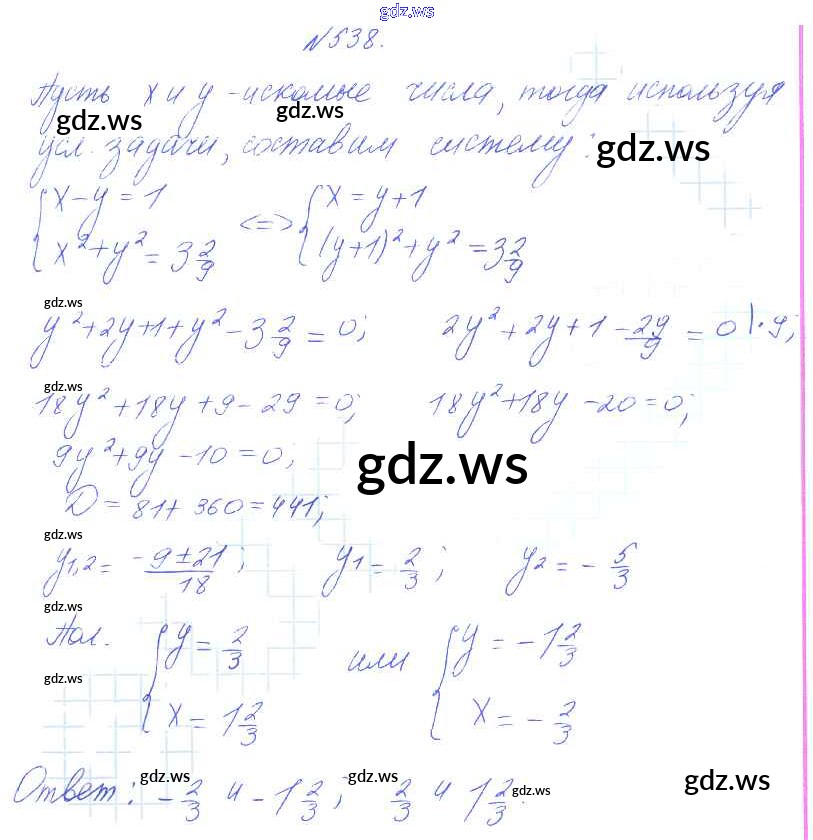 gdz.ws
N538.
Пусть x и y - искомые числа, тогда используя
gdz.ws gdz.ws
усл. задачи, составим систему: gdz.ws
{x-y=1 <=> {x=y+1
{x²+y²=3 2/9 {(y+1)²+y²=3 2/9
gdz.ws
y²+2y+1+y²-3 2/9=0; 2y²+2y+1-29/9=0 |·9;
gdz.ws
18y²+18y+9-29=0; 18y²+18y-20=0;
9y²+9y-10=0; gdz.ws
D=81+360=441;
gdz.ws
y1,2= (-9±21)/18; y1=2/3; y2=-5/3
gdz.ws
Пол. {y=2/3 или {y=-1 2/3
gdz.ws
{x=1 2/3 {x=-2/3
Ответ: -2/3 и -1 2/3; 2/3 и 1 2/3.
gdz.ws gdz.ws gdz.ws gdz.ws